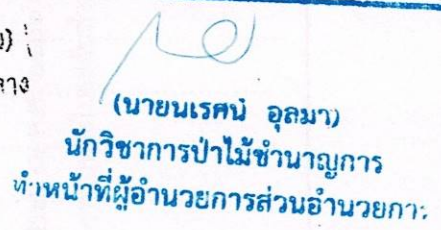 (นายนเรศน์ อุลมา)
นักวิชาการป่าไม้ชำนาญการ
ทำหน้าที่ผู้อำนวยการส่วนอำนวยการ